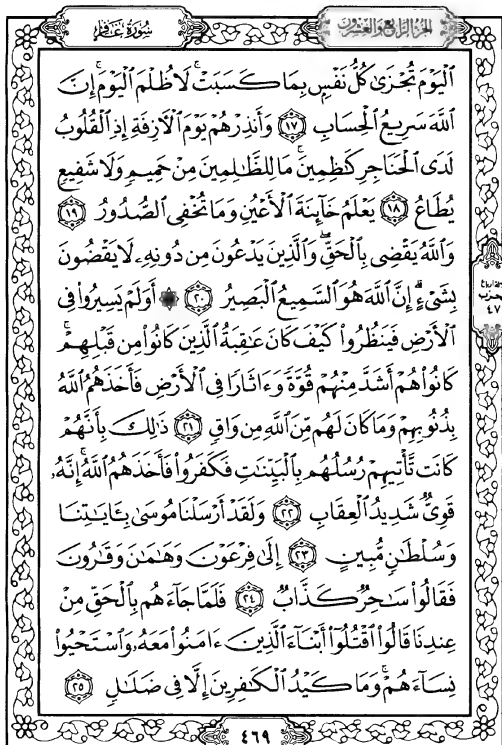 سُورَةُ غَافِرٍ
الجُزْءُ الرَّابِعُ وَالعِشْرُونَ
ٱلْيَوْمَ تُجْزَىٰ كُلُّ نَفْسٍۭ بِمَا كَسَبَتْ ۚ لَا ظُلْمَ ٱلْيَوْمَ ۚ إِنَّ
ٱللَّهَ سَرِيعُ ٱلْحِسَابِ ١٧ وَأَنذِرْهُمْ يَوْمَ ٱلْـَٔازِفَةِ إِذِ ٱلْقُلُوبُ
لَدَى ٱلْحَنَاجِرِ كَـٰظِمِينَ ۚ مَا لِلظَّـٰلِمِينَ مِنْ حَمِيمٍ وَلَا شَفِيعٍ
يُطَاعُ ١٨ يَعْلَمُ خَآئِنَةَ ٱلْأَعْيُنِ وَمَا تُخْفِى ٱلصُّدُورُ ١٩
وَٱللَّهُ يَقْضِى بِٱلْحَقِّ ۖ وَٱلَّذِينَ يَدْعُونَ مِن دُونِهِۦ لَا يَقْضُونَ
بِشَىْءٍ ۗ إِنَّ ٱللَّهَ هُوَ ٱلسَّمِيعُ ٱلْبَصِيرُ ٢٠ ۞ أَوَلَمْ يَسِيرُوا۟ فِى
ٱلْأَرْضِ فَيَنظُرُوا۟ كَيْفَ كَانَ عَـٰقِبَةُ ٱلَّذِينَ كَانُوا۟ مِن قَبْلِهِمْ ۚ
كَانُوا۟ هُمْ أَشَدَّ مِنْهُمْ قُوَّةً وَءَاثَارًا فِى ٱلْأَرْضِ فَأَخَذَهُمُ ٱللَّهُ
بِذُنُوبِهِمْ وَمَا كَانَ لَهُم مِّنَ ٱللَّهِ مِن وَاقٍ ٢١ ذَٰلِكَ بِأَنَّهُمْ
كَانَت تَّأْتِيهِمْ رُسُلُهُم بِٱلْبَيِّنَـٰتِ فَكَفَرُوا۟ فَأَخَذَهُمُ ٱللَّهُ ۚ إِنَّهُۥ
قَوِىٌّ شَدِيدُ ٱلْعِقَابِ ٢٢ وَلَقَدْ أَرْسَلْنَا مُوسَىٰ بِـَٔايَـٰتِنَا
وَسُلْطَـٰنٍ مُّبِينٍ ٢٣ إِلَىٰ فِرْعَوْنَ وَهَـٰمَـٰنَ وَقَـٰرُونَ
فَقَالُوا۟ سَـٰحِرٌ كَذَّابٌ ٢٤ فَلَمَّا جَآءَهُم بِٱلْحَقِّ مِنْ
عِندِنَا قَالُوا۟ ٱقْتُلُوٓا۟ أَبْنَآءَ ٱلَّذِينَ ءَامَنُوا۟ مَعَهُۥ وَٱسْتَحْيُوا۟
نِسَآءَهُمْ ۚ وَمَا كَيْدُ ٱلْكَـٰفِرِينَ إِلَّا فِى ضَلَـٰلٍ ٢٥
حزب
٤٧
٤٦٩